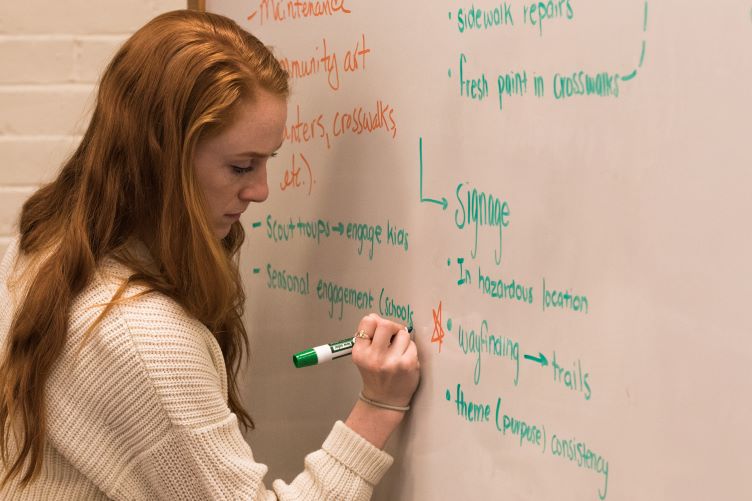 - Maintenance
art
crosswalks,
etc.).
- Scout troups → engage kids
- Seasonal engagement (schools
• sidewalk repairs
• fresh paint in crosswalks
Signage
• In hazardous location
• wayfinding → trails
• theme (purpose) consistency